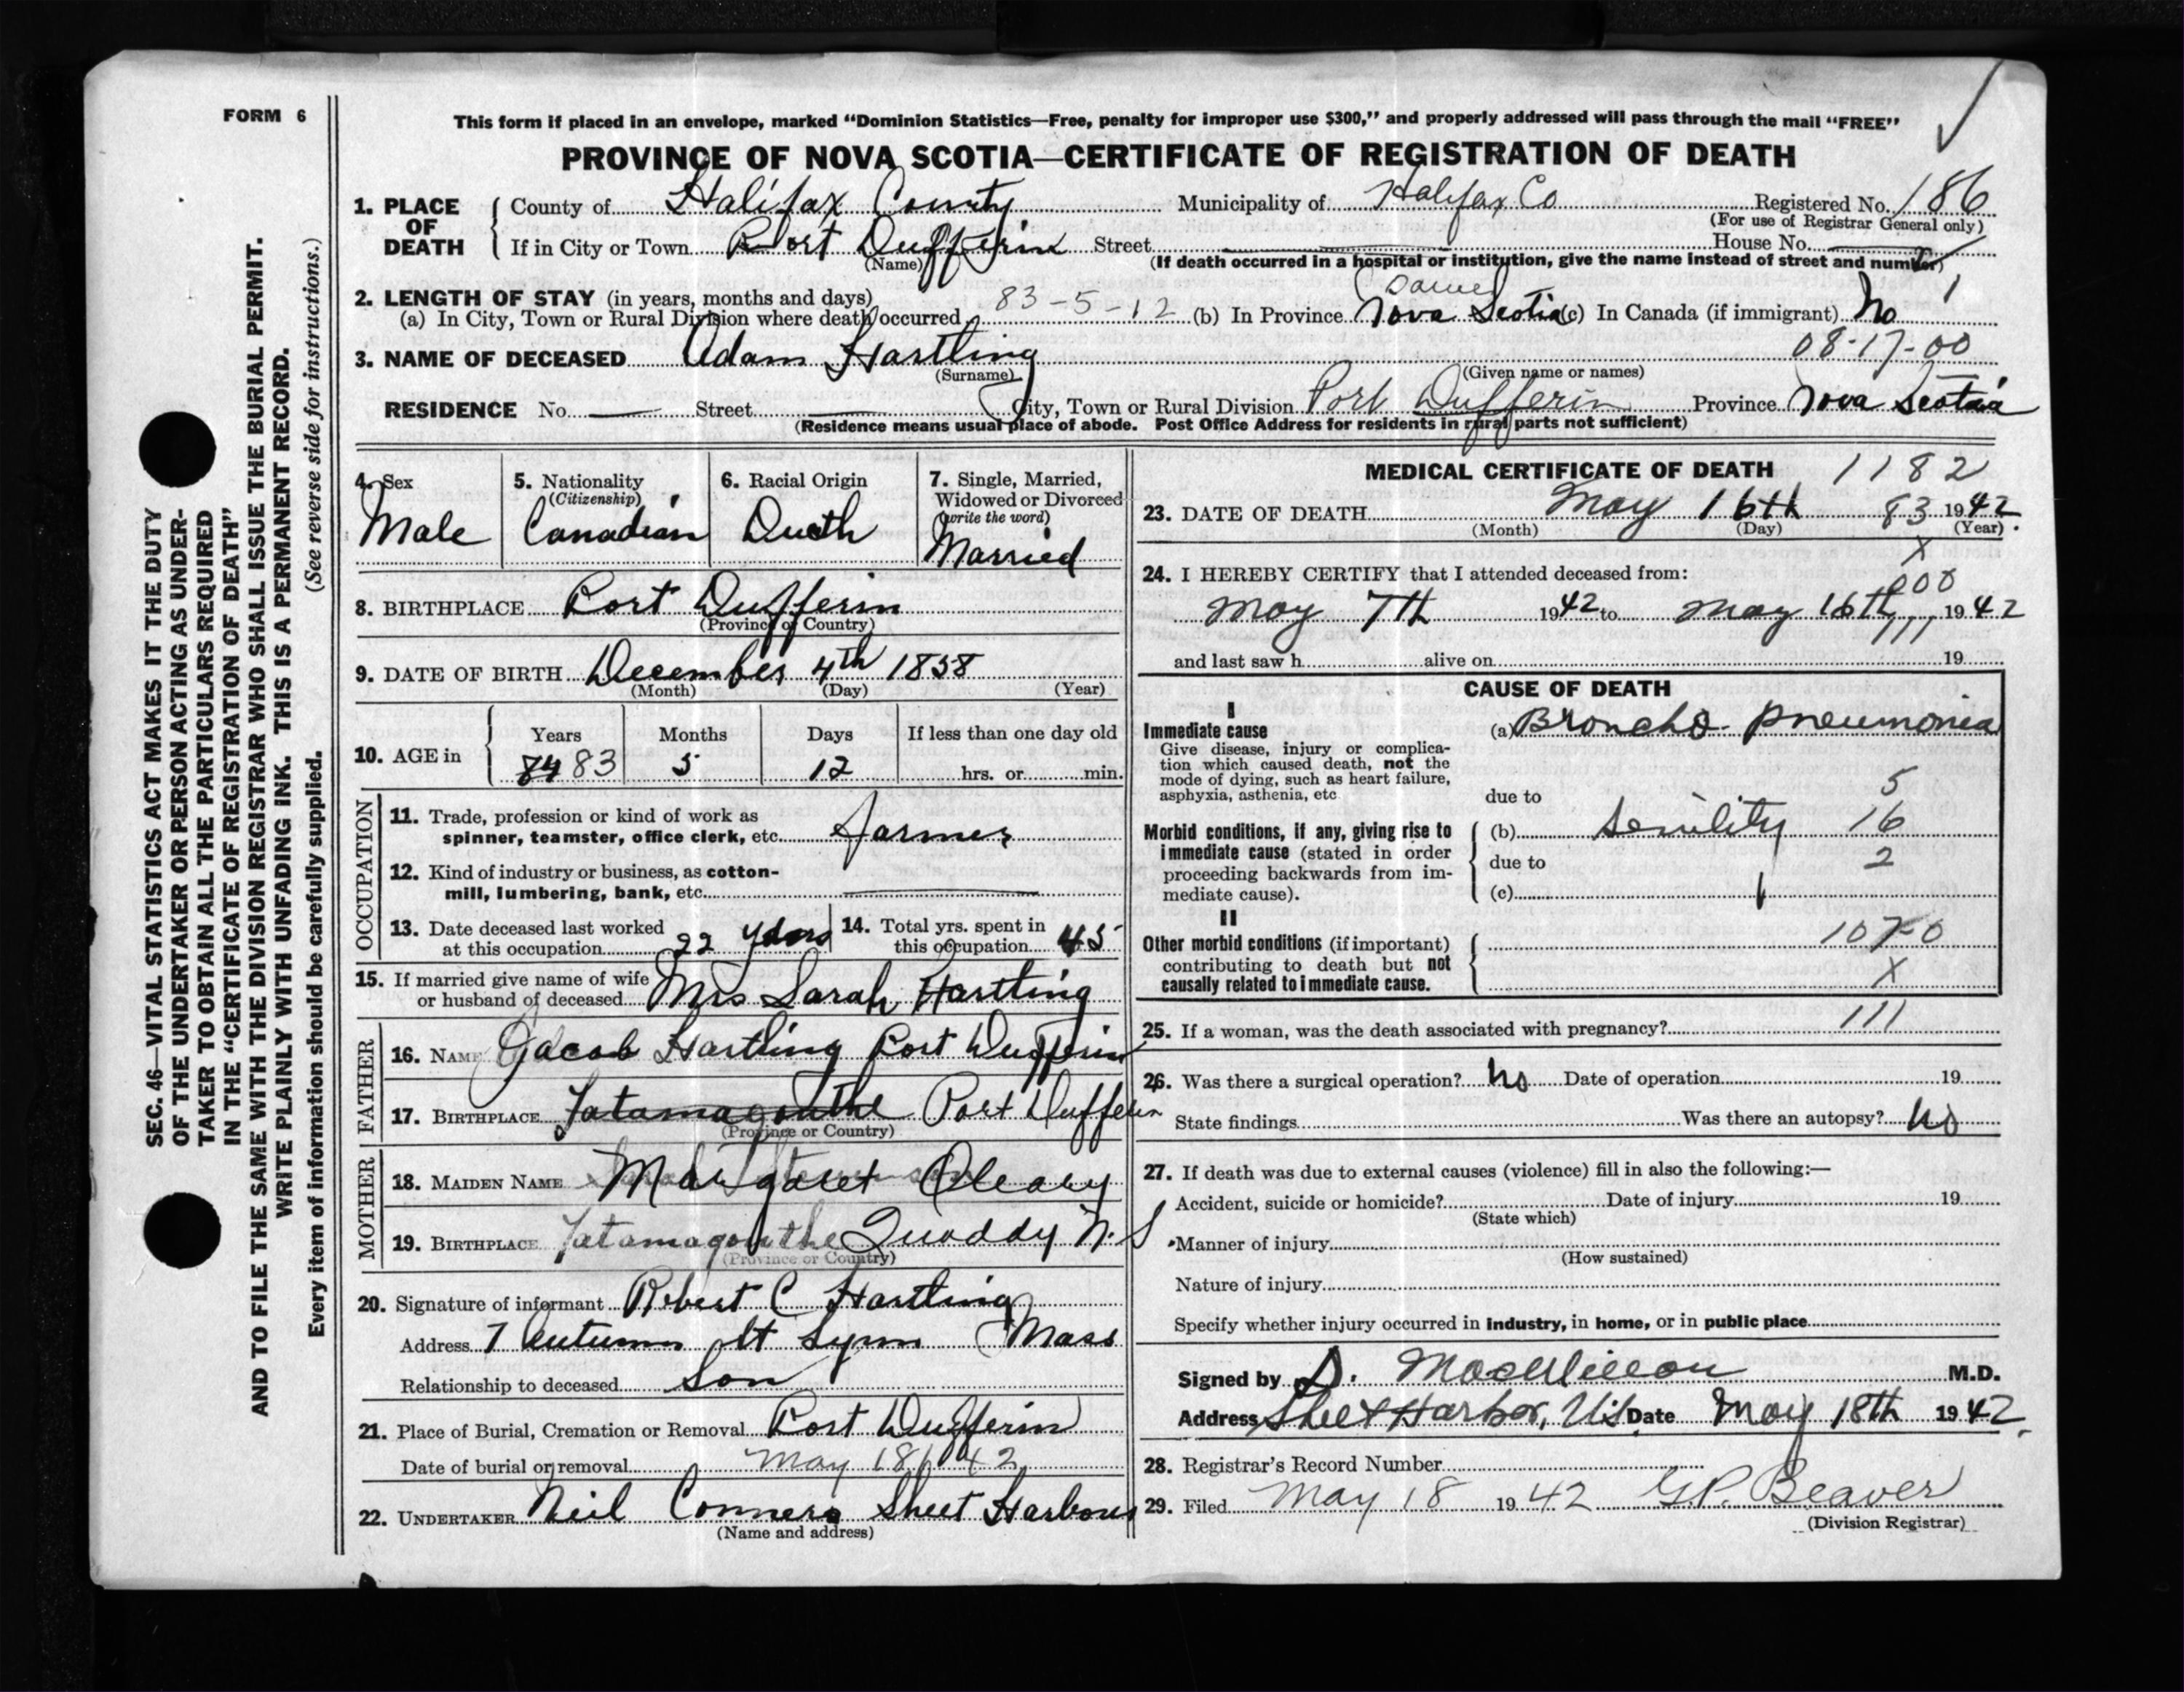 FORM 6
This form if placed in an envelope, marked “Dominion Statistics—Free, penalty for improper use $300,” and properly addressed will pass through the mail “FREE”
PROVINCE OF NOVA SCOTIA—CERTIFICATE OF REGISTRATION OF DEATH
SEC. 46—VITAL STATISTICS ACT MAKES IT THE DUTY
OF THE UNDERTAKER OR PERSON ACTING AS UNDER-
TAKER TO OBTAIN ALL THE PARTICULARS REQUIRED
IN THE “CERTIFICATE OF REGISTRATION OF DEATH”
AND TO FILE THE SAME WITH THE DIVISION REGISTRAR WHO SHALL ISSUE THE BURIAL PERMIT.
WRITE PLAINLY WITH UNFADING INK. THIS IS A PERMANENT RECORD.
Every item of information should be carefully supplied. (See reverse side for instructions.)
1. PLACE OF DEATH
County of Halifax County Municipality of Halifax Co Registered No. 186
(For use of Registrar General only)
If in City or Town Port Dufferin Street House No.
(Name)
(If death occurred in a hospital or institution, give the name instead of street and number)
2. LENGTH OF STAY (in years, months and days)
(a) In City, Town or Rural Division where death occurred 83-5-12 (b) In Province Nova Scotia (c) In Canada (if immigrant) No
Same 1
3. NAME OF DECEASED Adam Hartling 08-17-00
(Surname) (Given name or names)
RESIDENCE No. Street City, Town or Rural Division Port Dufferin Province Nova Scotia
(Residence means usual place of abode. Post Office Address for residents in rural parts not sufficient)
4. Sex
Male
5. Nationality
(Citizenship)
Canadian
6. Racial Origin
Duth
7. Single, Married,
Widowed or Divorced
(write the word)
Married
8. BIRTHPLACE Port Dufferin
(Province or Country)
9. DATE OF BIRTH December 4th 1858
(Month) (Day) (Year)
10. AGE in Years Months Days If less than one day old
84 83 5 12 hrs. or min.
OCCUPATION
11. Trade, profession or kind of work as
spinner, teamster, office clerk, etc. Farmer
12. Kind of industry or business, as cotton-
mill, lumbering, bank, etc.
13. Date deceased last worked
at this occupation 22 years
14. Total yrs. spent in
this occupation 45
15. If married give name of wife
or husband of deceased Mrs Sarah Hartling
FATHER
16. NAME Jacob Hartling Port Dufferin
17. BIRTHPLACE Tatamagouthe Port Dufferin
(Province or Country)
MOTHER
18. MAIDEN NAME Margaret Oleary
19. BIRTHPLACE Tatamagouthe Quoddy N.S
(Province or Country)
20. Signature of informant Robert C Hartling
Address 7 Autumn St Lynn Mass
Relationship to deceased Son
21. Place of Burial, Cremation or Removal Port Dufferin
Date of burial or removal May 18, 42
22. UNDERTAKER Neil Conners Sheet Harbour
(Name and address)
MEDICAL CERTIFICATE OF DEATH 1182
23. DATE OF DEATH May 16th 83 1942.
(Month) (Day) (Year)
x
24. I HEREBY CERTIFY that I attended deceased from:
000
May 7th 1942 to May 16th 1942
111
and last saw h alive on 19
CAUSE OF DEATH
I
Immediate cause (a) Broncho pneumonia
Give disease, injury or complica-
tion which caused death, not the
mode of dying, such as heart failure,
asphyxia, asthenia, etc
due to 5
Morbid conditions, if any, giving rise to
immediate cause (stated in order
proceeding backwards from im-
mediate cause).
(b) Senility 16
due to 2
(c)
II
Other morbid conditions (if important)
contributing to death but not
causally related to immediate cause.
107-0
X
25. If a woman, was the death associated with pregnancy? 111
26. Was there a surgical operation? No Date of operation 19
State findings Was there an autopsy? No
27. If death was due to external causes (violence) fill in also the following:—
Accident, suicide or homicide? Date of injury 19
(State which)
Manner of injury
(How sustained)
Nature of injury
Specify whether injury occurred in industry, in home, or in public place
Signed by D. MacMillan M.D.
Address Sheet Harbor, N.S. Date May 18th 1942.
28. Registrar’s Record Number
29. Filed May 18 1942 G.P. Beaver
(Division Registrar)